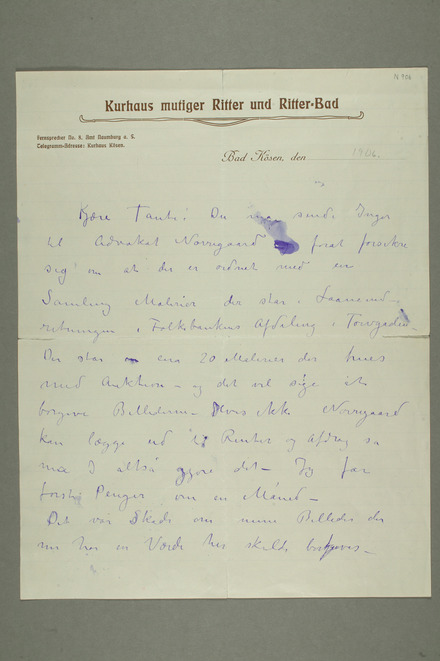 N 906
Kurhaus mutiger Ritter und Ritter-Bad
Fernsprecher No. 8. Amt Naumburg a. S.
Telegramm-Adresse: Kurhaus Kösen.
Bad Kösen, den 1906.
Kjære Tante! Du må sende Inger
til Advokat Nørregaard for at forsikre
sig om at det er ordnet med en
Samling Malerier der står i Laaneind-
retningen i Folkebankens Afdeling i Torvgaden
Der står en cirka 20 Malerier der trues
med Auktion – og det vil sige at
bortgive Billederne – Hvis ikke Nørregaard
kan lægge ud til Renter og Afdrag så
må I altså gjøre det – Jeg får
først Penger om en Måned –
Det var Skade om mine Billeder der
nu har en Værdi her skulde bortgives –